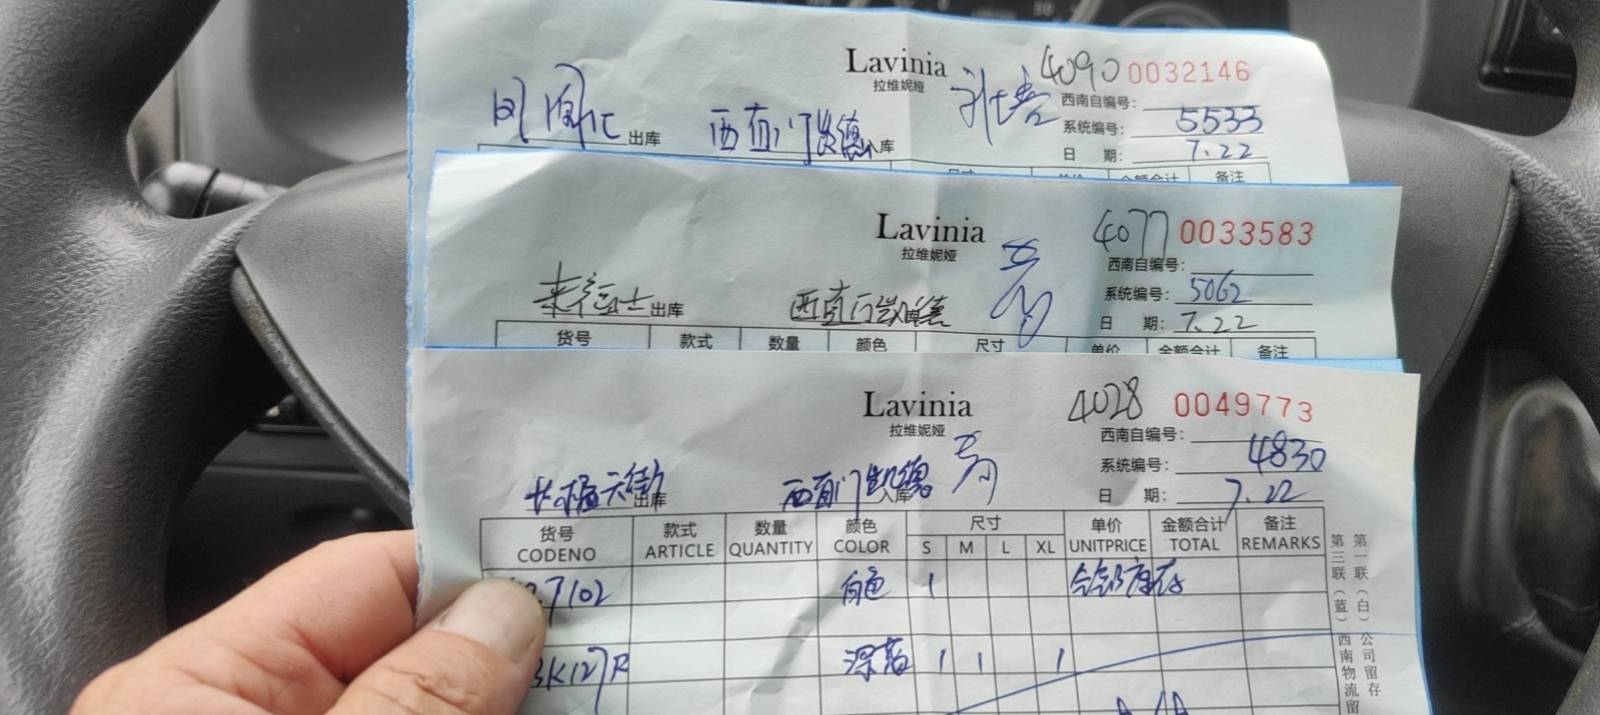 Lavinia 4090 0032146
拉维妮娅
西南自编号:
凤凰汇 出库 西直门凯德 入库
系统编号: 5533
日 期: 7.22
尺寸 单价 金额合计 备注
Lavinia 4077 0033583
拉维妮娅
西南自编号:
出库 西直门凯德
系统编号: 5062
日 期: 7.22
货号 款式 数量 颜色 尺寸 单价 金额合计 备注
Lavinia 4028 0049773
拉维妮娅
西南自编号:
系统编号: 4830
长楹天街 出库 西直门凯德 入库
日 期: 7.22
货号 款式 数量 颜色 尺寸 单价 金额合计 备注
CODENO ARTICLE QUANTITY COLOR S M L XL UNITPRICE TOTAL REMARKS
7102 白色 1
K127R 深蓝 1 1 1
第一联(白)公司留存
第三联(蓝)西南物流留